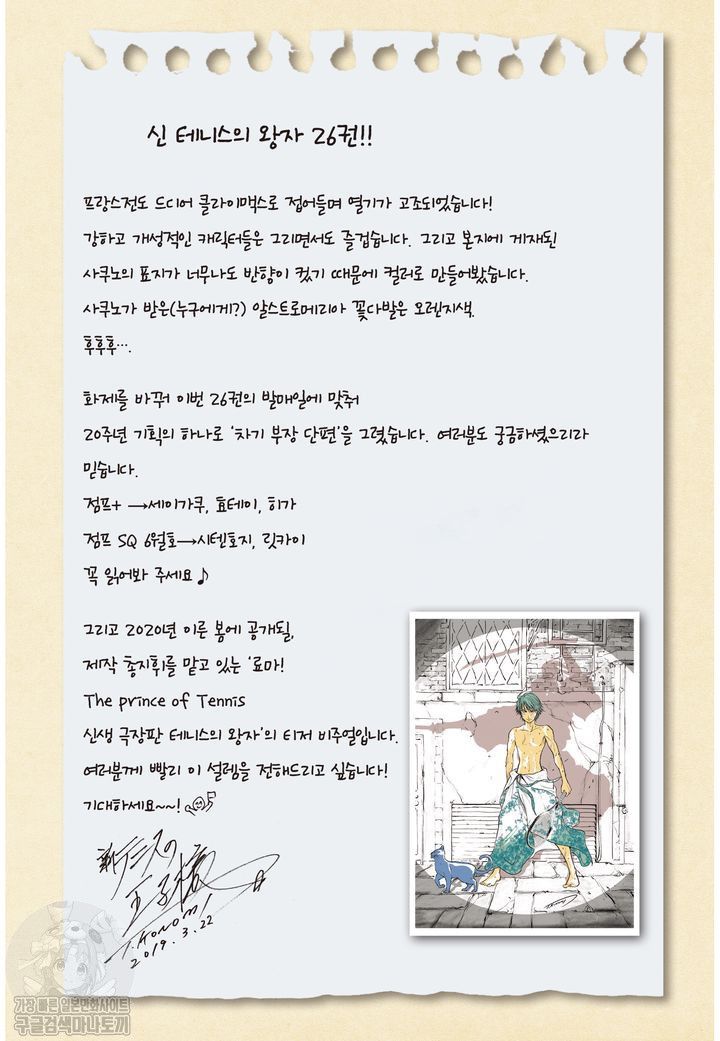 신 테니스의 왕자 26권!!
프랑스전도 드디어 클라이맥스로 접어들며 열기가 고조되었습니다!
강하고 개성적인 캐릭터들은 그리면서도 즐겁습니다. 그리고 본지에 게재된
사쿠노의 표지가 너무나도 반향이 컸기 때문에 컬러로 만들어봤습니다.
사쿠노가 받은(누구에게?) 알스트로메리아 꽃다발은 오렌지색.
후후후….
화제를 바꿔 이번 26권의 발매일에 맞춰
20주년 기획의 하나로 '차기 부장 단편'을 그렸습니다. 여러분도 궁금하셨으리라
믿습니다.
점프+ →세이가쿠, 효테이, 히가
점프 SQ 6월호→시텐호지, 릿카이
꼭 읽어봐 주세요♪
그리고 2020년 이른 봄에 공개될,
제작 총지휘를 맡고 있는 '료마!
The prince of Tennis
신생 극장판 테니스의 왕자'의 티저 비주얼입니다.
여러분께 빨리 이 설렘을 전해드리고 싶습니다!
기대하세요~~!
新テニスの
王子様
T.KONOMI
2019.3.22
가장 빠른 일본만화사이트
구글검색마나토끼